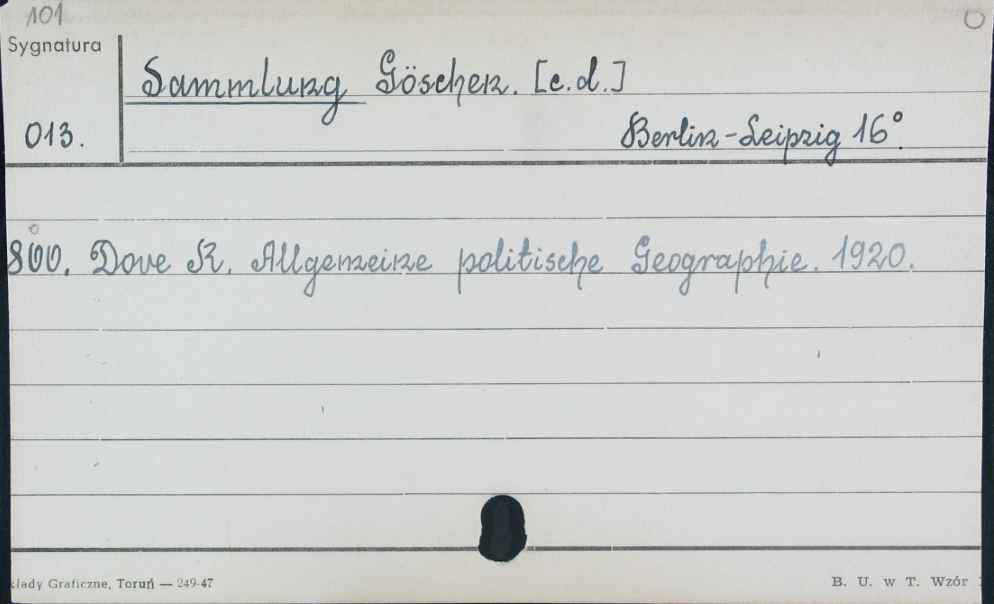 101
Sygnatura
Sammlung Göschen. [c.d.]
013.
Berlin-Leipzig 16°.
800. Dove K. Allgemeine politische Geographie. 1920.
kłady Graficzne, Toruń — 249-47
B. U. w T. Wzór